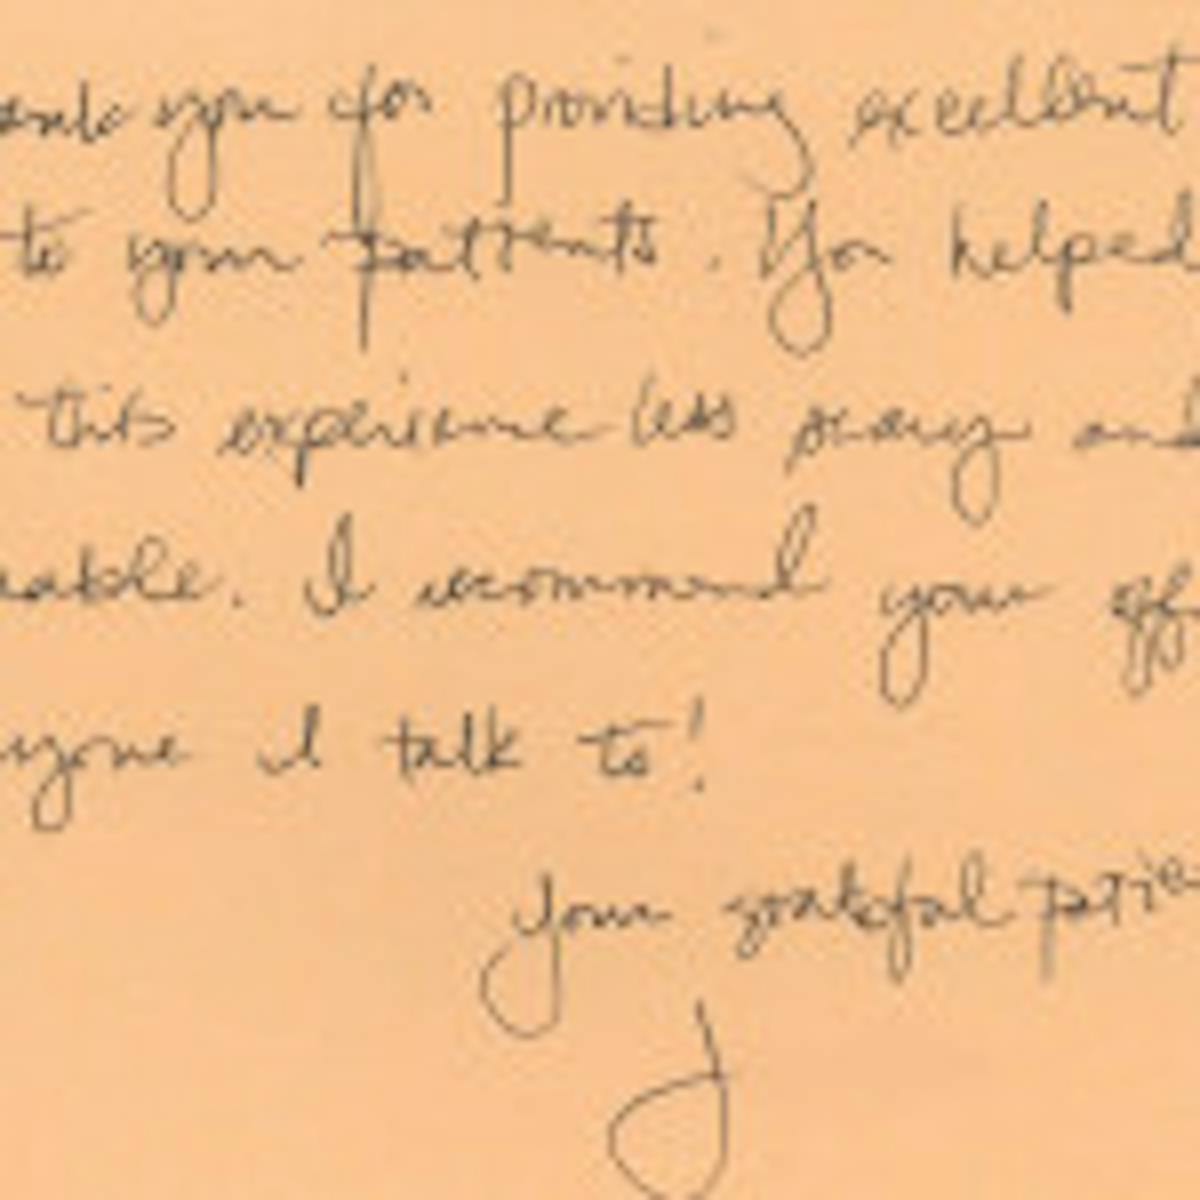 ank you for providing excellent
to your patients. You helped
this experience less scary and
able. I recommend your off
yone I talk to!
Your grateful patie